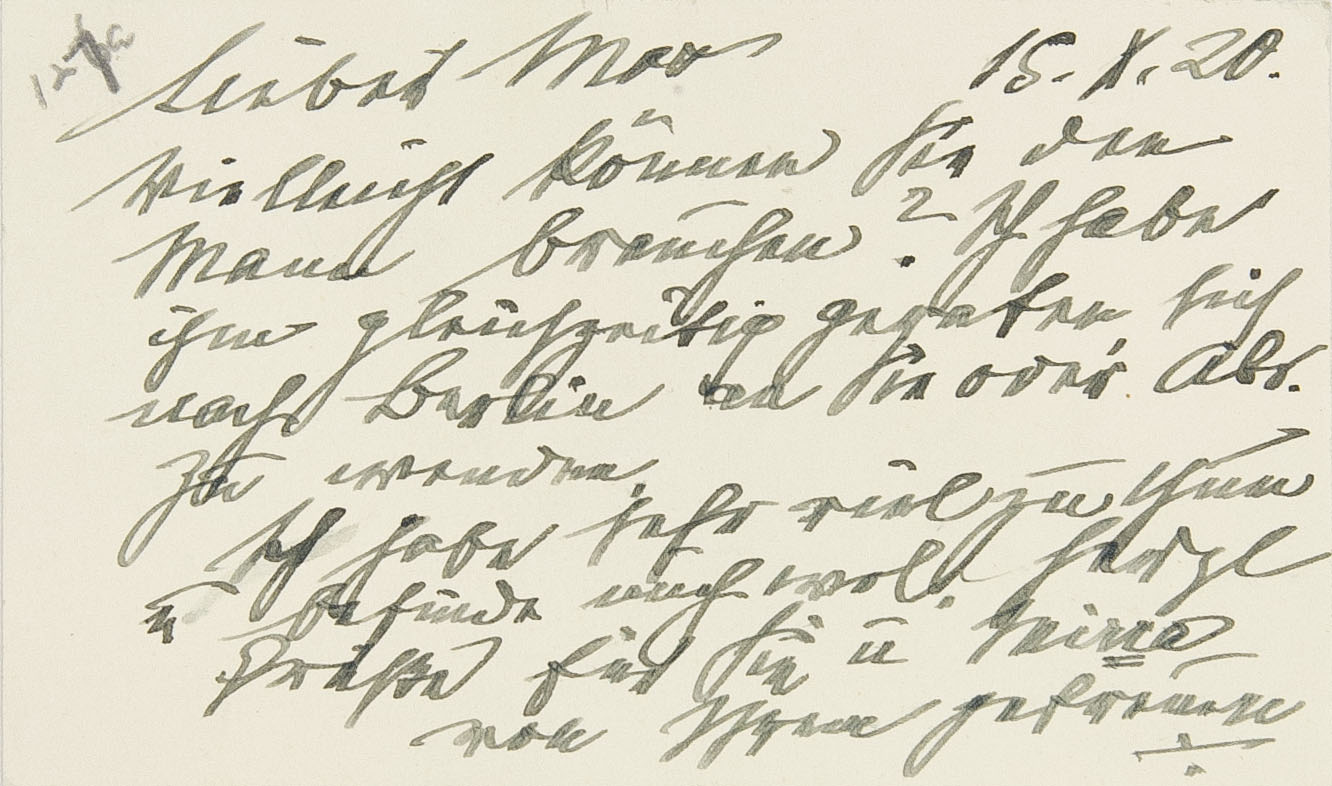 Lieber Max 15. X. 20.
Vielleicht können Sie den
Mann brauchen? Ich habe
ihm gleichzeitig geraten sich
nach Berlin an Sie oder Abr.
zu wenden.
Ich habe sehr viel zu thun
u befinde mich wol. Herzl
Grüße für Sie u
von Ihrem getreuen